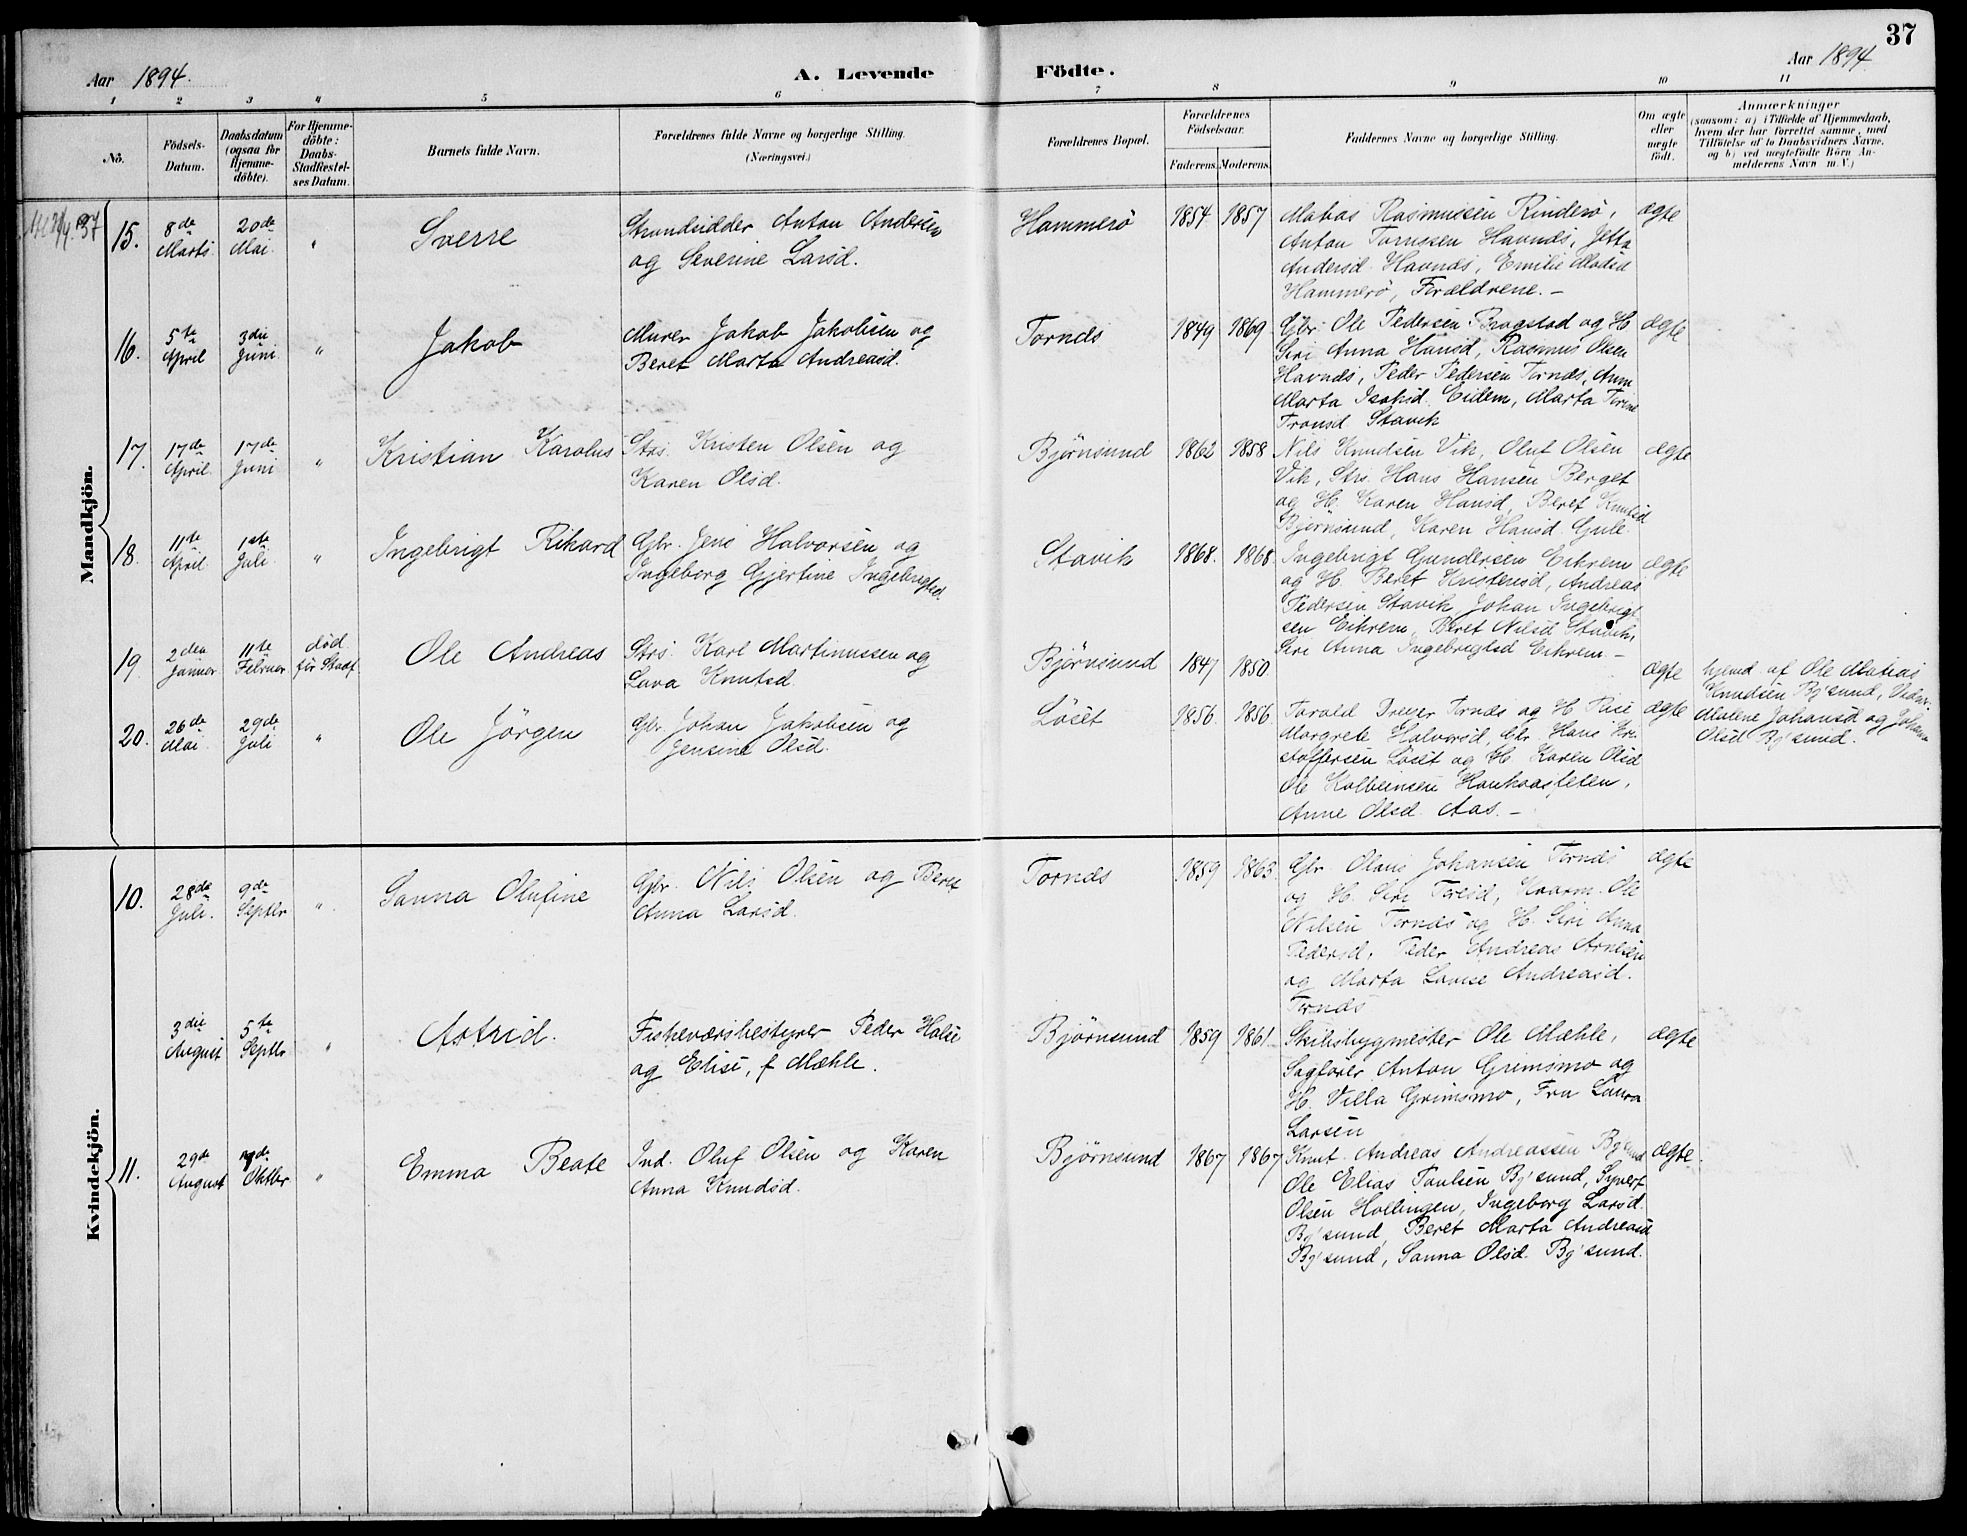 37
Aar 1894.
A. Levende Födte.
Aar 1894
1 2 3 4 5 6 7 8 9 10 11
No.
Födsels-Datum.
Daabsdatum (ogsaa for Hjemme-döbte).
For Hjemme-döbte: Daabs-Stadfæstel-ses Datum.
Barnets fulde Navn.
Forældrenes fulde Navne og borgerlige Stilling. (Næringsvei.)
Forældrenes Bopæl.
Forældrenes Födselsaar.
Faderens. Moderens.
Faddernes Navne og borgerlige Stilling.
Om ægte eller uægte født.
Anmærkninger
(saasom: a) i Tilfælde af Hjemmedaab,
hvem der har forrettet samme, med
Tilföielse af to Daabsvidners Navne,
og b) ved uægtefödte Börn An-
melderens Navn m. V.)
Mandkjön.
15. 8de Marts. 20de Mai. " Sverre
Strandsidder Anton Andersen
og Severine Larsd.
Hammerö 1854 1857
Matias Rasmussen Rinderö,
Anton Tornæssen Havnæs, Jetta
Andersd. Havnæs, Emilie Madsd
Hammerö, Forældrene. –
ægte
16. 5te April 3die Juni. " Jakob
Murer Jakob Jakobsen og
Beret Marta Andreasd.
Tornæs 1849 1869
Gbr. Ole Pedersen Brogstad og H.
Siri Anna Hansd, Rasmus Olsen
Havnæs, Peder Pedersen Tornæs, Ann
Marta Isaksd. Eidem, Marta
Tronsd Stavik
ægte
17. 17de April 17de Juni " Kristian Karolus
Strs. Kristen Olsen og
Karen Olsd.
Björnsund 1862 1858
Nils Knudsen Vik, Oluf Olsen
Vik, Strs. Hans Hansen Berget
og H. Karen Hansd, Beret Knutsd
Björnsund, Karen Hansd. Gule
ægte
18. 11te April. 1ste Juli. " Ingebrigt Rikard
Gbr. Jens Halvorsen og
Ingeborg Gjertine Ingebrigtsd.
Stavik 1868. 1868.
Ingebrigt Gundersen Eikrem
og H. Beret Kristensd, Andreas
Pedersen Stavik, Johan Ingebrigt
sen Eikrem, Beret Nilsd Stavik,
Siri Anna Ingebrigtsd Eikrem. –
ægte
19. 2den Januar 11te Februar död för Stadf. Ole Andreas
Strs. Karl Martinussen og
Lava Knutsd.
Björnsund 1847 1850.
ægte
hjemd. af Ole Matias
Knudsen Bj'sund, Vidner:
Malene Johansd og Johanna
Olsd Bj'sund.
20. 26de Mai. 29de Juli " Ole Jörgen
Gbr. Johan Jakobsen og
Jensine Olsd.
Löset 1856. 1856.
Torald Drever Tornæs og H.
Margrete Halvorsd, Gbr. Hans Kri-
stoffersen Löset og H. Karen Olsd
Ole Kolbeinsen Haukaasteten,
Anne Olsd. Aas. –
ægte
Kvindekjön.
10. 28de Juli. 9de Septbr " Sanna Olufine
Gbr. Nils Olsen og Beret
Anna Larsd.
Tornæs 1859 1863.
Gbr. Olaus Johansen Tornæs
og H. Siri, Kaarm. Ole
Nilsen Tornæs og H. Siri Anna
Pedersd, Peder Andreas Arnesen
og Marta Lovise Andreasd.
Tornæs
ægte
3die August 5te Septbr " Astrid.
Fiskeværsbestyrer Peder Holse
og Elise, f Mæhle.
Björnsund 1859 1861
Skibsbygmester Ole Mæhle,
Sagförer Anton Grimsmo og
H. Villa Grimsmo, Fru Laura
Larsen
ægte
11. 29de August Oktbr " Emma Beate
Ind. Oluf Olsen og Karen
Anna Knudsd.
Björnsund 1867 1867
Knut Andreas Andreassen Bj'sund
Ole Elias Paulsen Bj'sund, Syvert
Olsen Hollingen, Ingeborg Larsd.
Bj'sund, Beret Marta Andreasd
Bj'sund, Sanna Olsd. Bj'sund.
ægte.